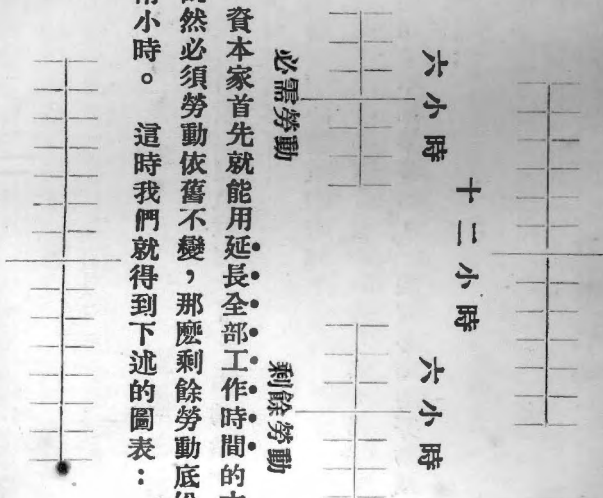 十二小時
六小時
六小時
必需勞動
剩餘勞動
資本家首先就能用延長全部工作時間的
然必須勞動依舊不變，那麽剩餘勞動底
小時。　這時我們就得到下述的圖表：